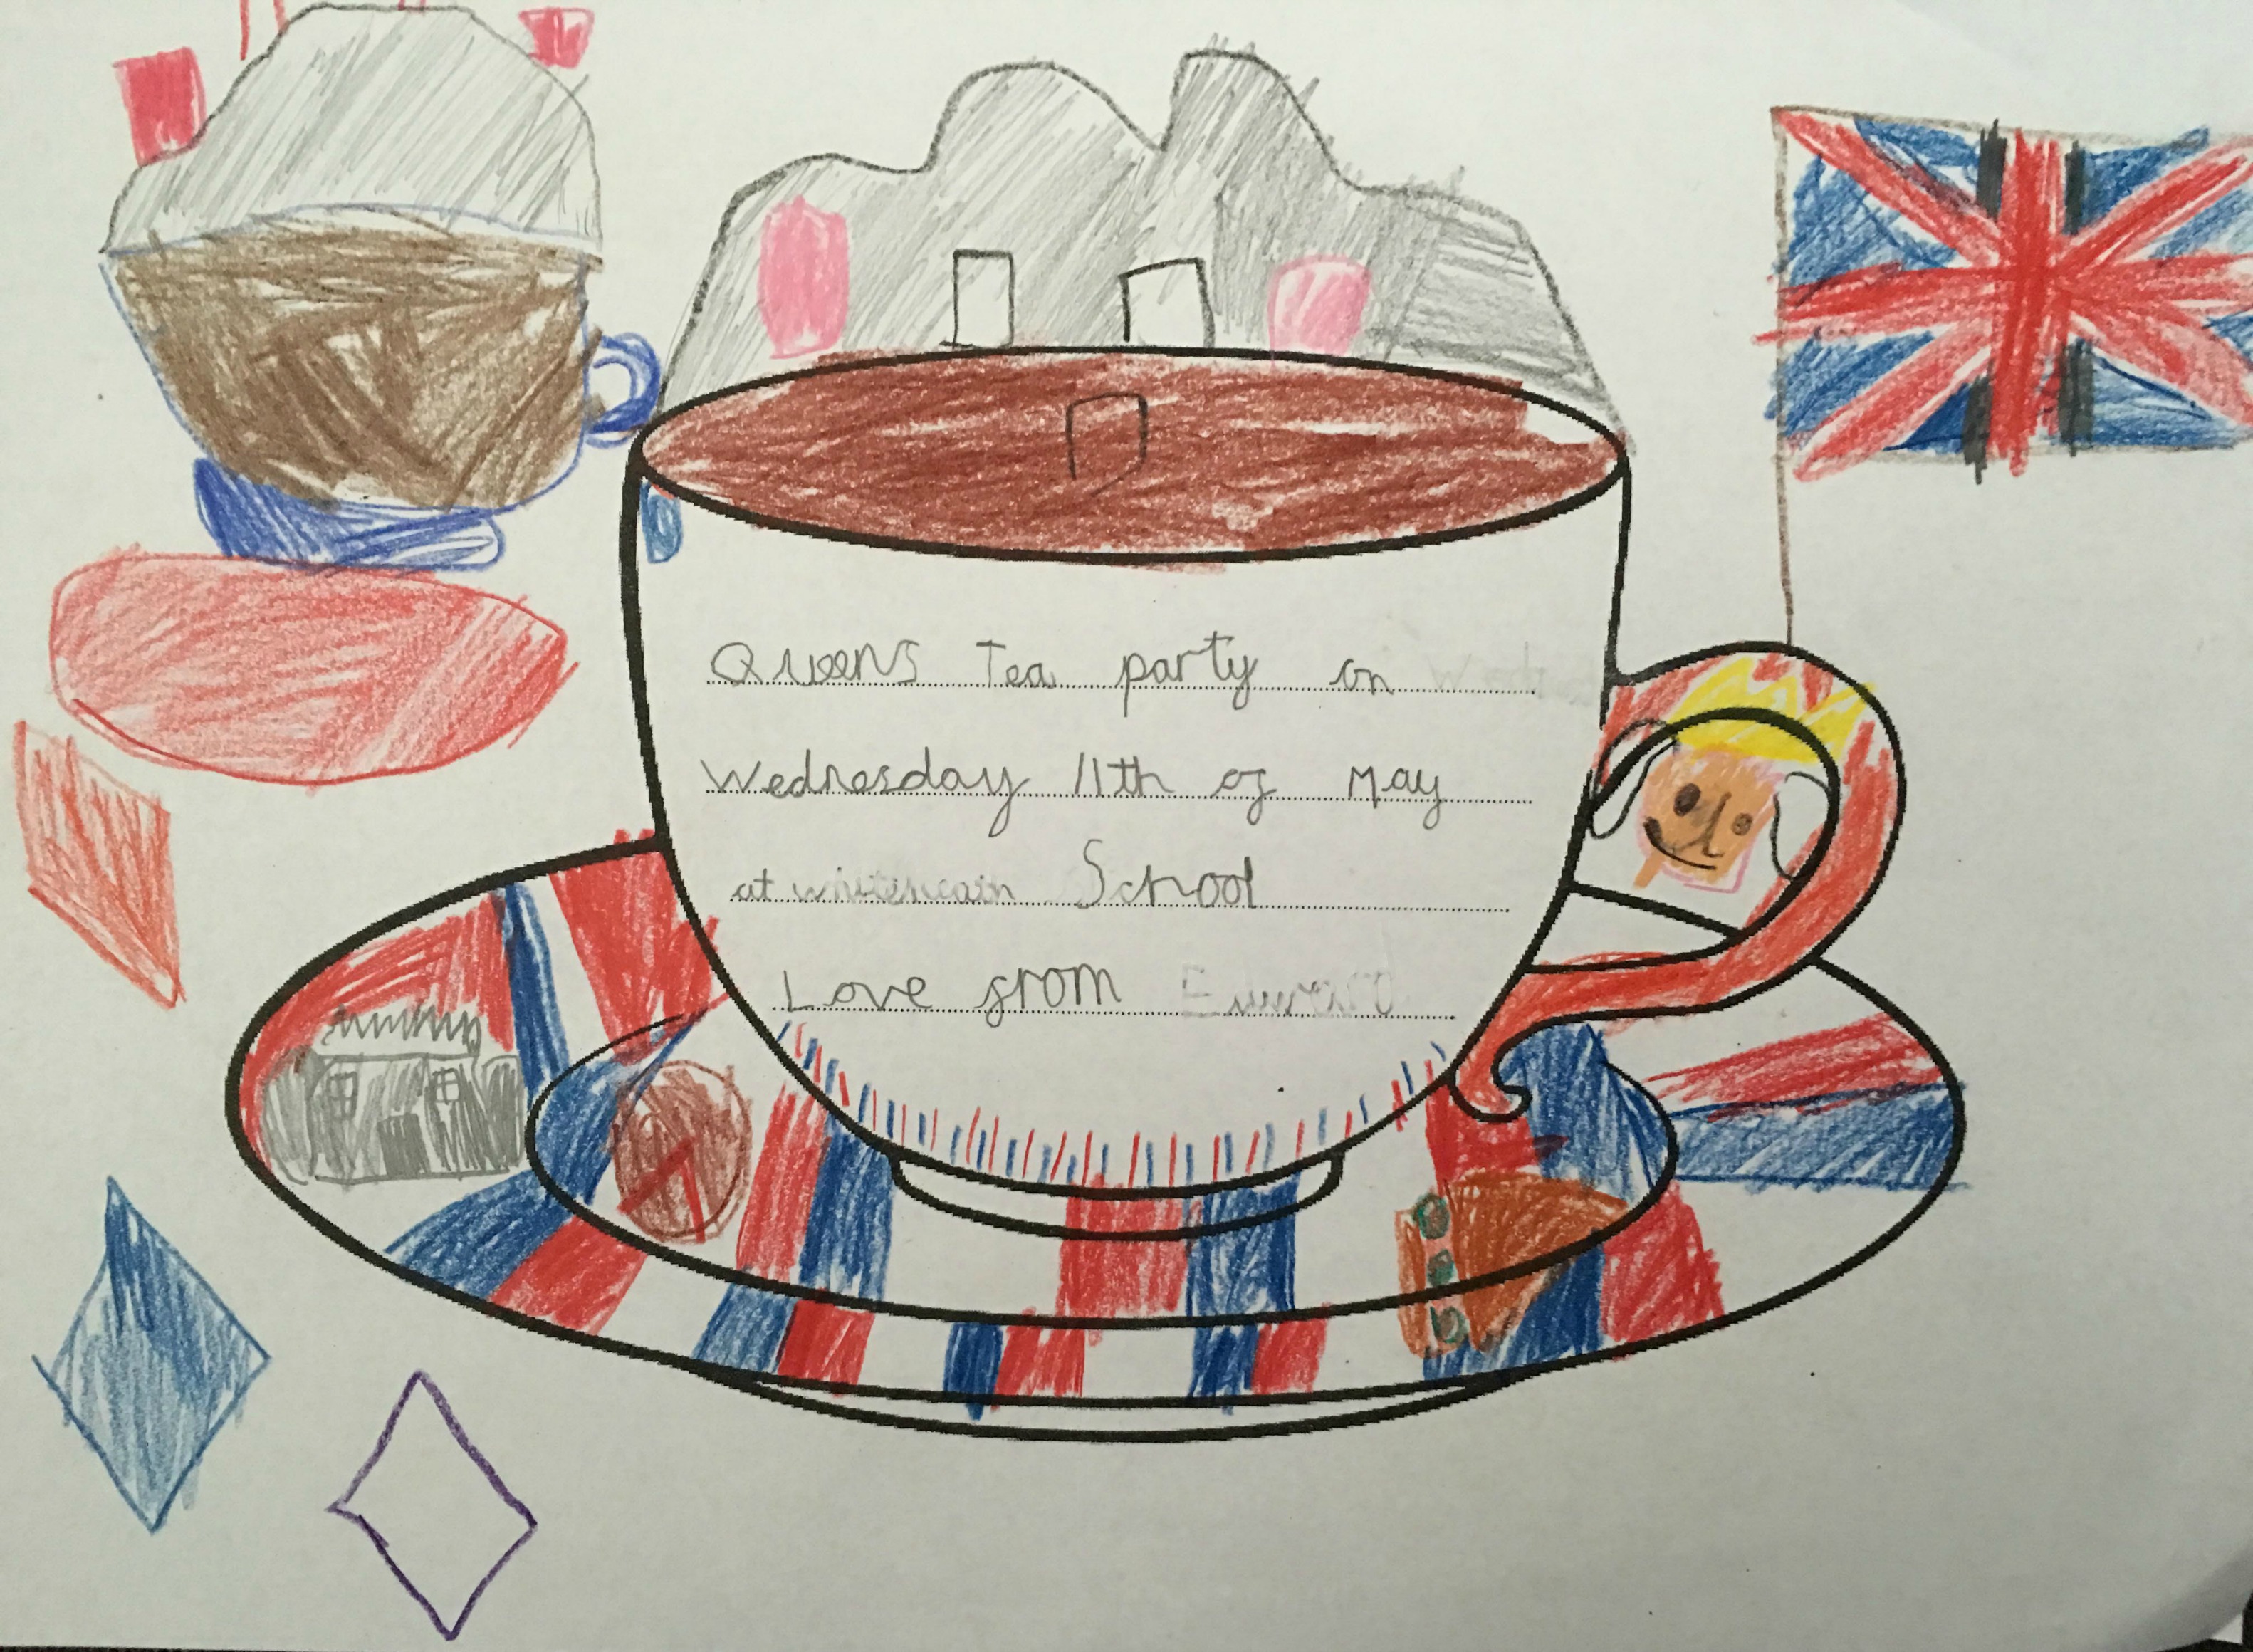 Queens Tea party on
Wednesday 11th of May
at whiteheath School
Love from Edward